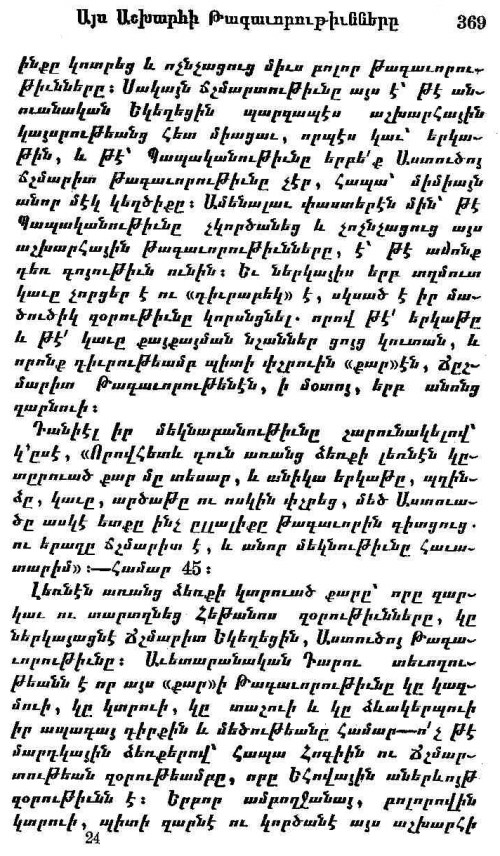 Այս Աշխարհի Թագաւորութիւնները 369
ինքը կոտրեց և ոչնչացուց միւս բոլոր թագաւորու-
թիւնները։ Սակայն ճշմարտութիւնը այս է՝ թէ ան-
ուանական Եկեղեցին պարզապէս աշխարհային
կայսրութեանց հետ միացաւ, որպէս կաւ՝ երկա-
թին, և թէ՝ Պապականութիւնը երբե՛ք Աստուծոյ
ճշմարիտ թագաւորութիւնը չէր, հապա՝ միմիայն
անոր մէկ կեղծիքը։ Ամենալաւ փաստերէն մին՝ թէ
Պապականութիւնը չկործանեց և չոչնչացուց այս
աշխարհային թագաւորութիւնները, է՝ թէ ասոնք
դեռ գոյութիւն ունին։ Եւ ներկայիս երբ աղմուտ
կաւը չորցեր է ու «դիւրաբեկ» է, սկսած է իր մա-
ծուծիկ զօրութիւնը կորսնցնել. որով թէ՛ երկաթը
և թէ՛ կաւը քայքայման նշաններ ցոյց կուտան, և
որոնք դիւրութեամբ պիտի փշրուին «քար»էն, Ճըշ-
մարիտ Թագաւորութենէն, ի մօտոյ, երբ անոնց
զարնուի։
Դանիէլ իր մեկնաբանութիւնը շարունակելով՝
կ՚ըսէ, «Որովհետև դուն առանց ձեռքի լեռնէն կը-
տըրուած քար մը տեսար, և անիկա երկաթը, պղին-
ձը, կաւը, արծաթը ու ոսկին փշրեց, մեծ Աստուա-
ծը ասկէ ետքը ինչ ըլլալիքը թագաւորին գիտցուց.
ու երազը ճշմարիտ է, և անոր մեկնութիւնը հաւա-
տարիմ»։—Համար 45։
Լեռնէն առանց ձեռքի կտրուած քարը՝ որը զար-
կաւ ու տարտղնեց Հեթանոս զօրութիւնները, կը
ներկայացնէ Ճշմարիտ Եկեղեցին, Աստուծոյ Թագա-
ւորութիւնը։ Աւետարանական Դարու տեւողու-
թեանն է որ այս «քար»ի Թագաւորութիւնը կը կազ-
մուի, կը կտրուի, կը տաշուի և կը ձևակերպուի
իր ապագայ դիրքին և մեծութեանը համար—ո՛չ թէ
մարդկային ձեռքերով՝ հապա Հոգիին ու Ճշմար-
տութեան զօրութեամբը, որը Եհովային աներևոյթ
զօրութիւնն է։ Երբոր ամբողջանայ, բոլորովին
կտրուի, պիտի զարնէ ու կործանէ այս աշխարհի
24